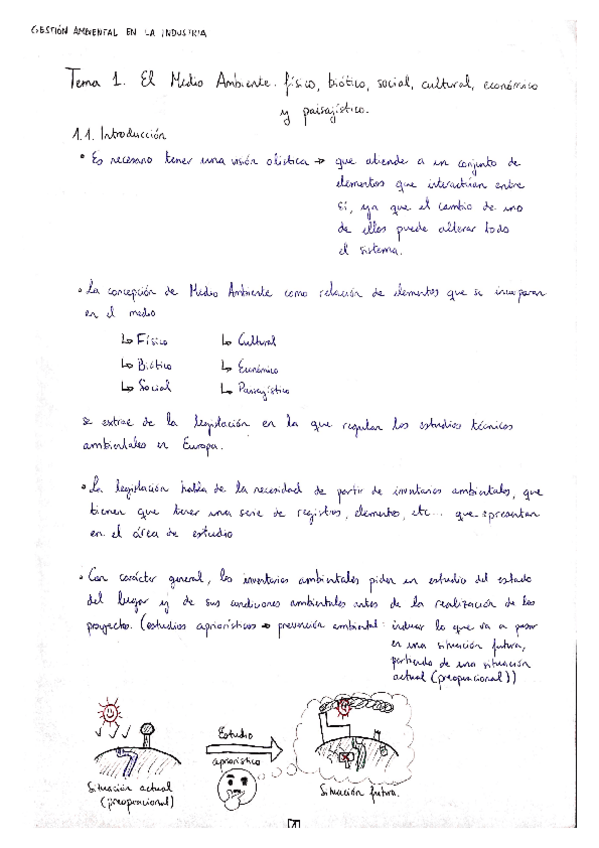 GESTIÓN AMBIENTAL EN LA INDUSTRIA
Tema 1. El Medio Ambiente. físico, biótico, social, cultural, económico
y paisajístico.
1.1. Introducción
• Es necesario tener una visión olística → que atiende a un conjunto de
elementos que interactúan entre
sí, ya que el cambio de uno
de ellos puede alterar todo
el sistema.
• La concepción de Medio Ambiente como relación de elementos que se incorporan
en el medio
↳ Físico ↳ Cultural
↳ Biótico ↳ Económico
↳ Social ↳ Paisajístico
se extrae de la legislación en la que regulan los estudios técnicos
ambientales en Europa.
• La legislación habla de la necesidad de partir de inventarios ambientales, que
tienen que tener una serie de registros, elementos, etc... que presentan
en el área de estudio
• Con carácter general, los inventarios ambientales piden un estudio del estado
del lugar y de sus condiciones ambientales antes de la realización de los
proyectos. (estudios apriorísticos → prevención ambiental: indicar lo que va a pasar
en una situación futura,
partiendo de una situación
actual (preoperacional))
Estudio
apriorístico
Situación actual
(preoperacional)
Situación futura.
1